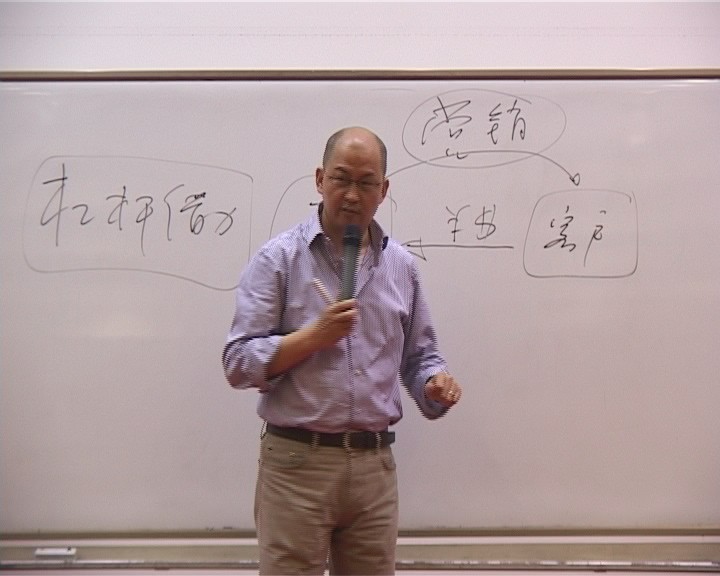 营销
杠杆借力
¥$
客户